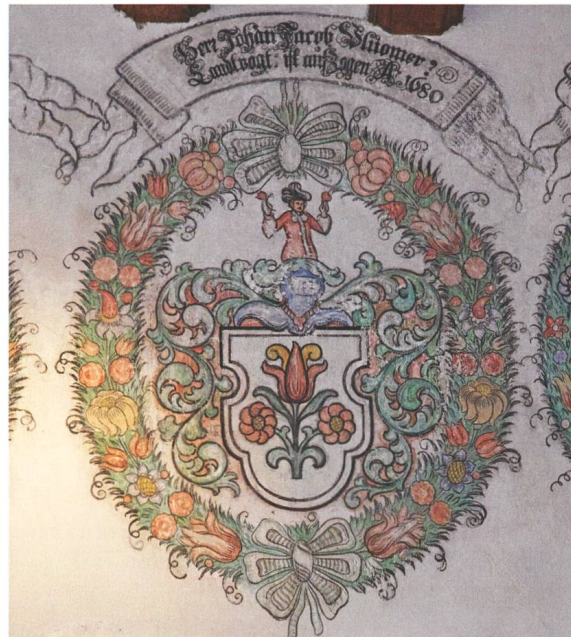 Herr Johan Jacob Blůomer:
Landtvogt: ist aufzogen A: 1680